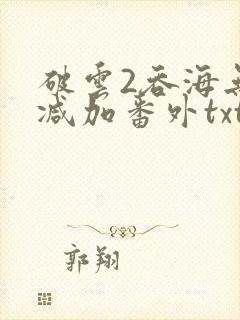 破雲2吞海無
减加番外txt
郭翔